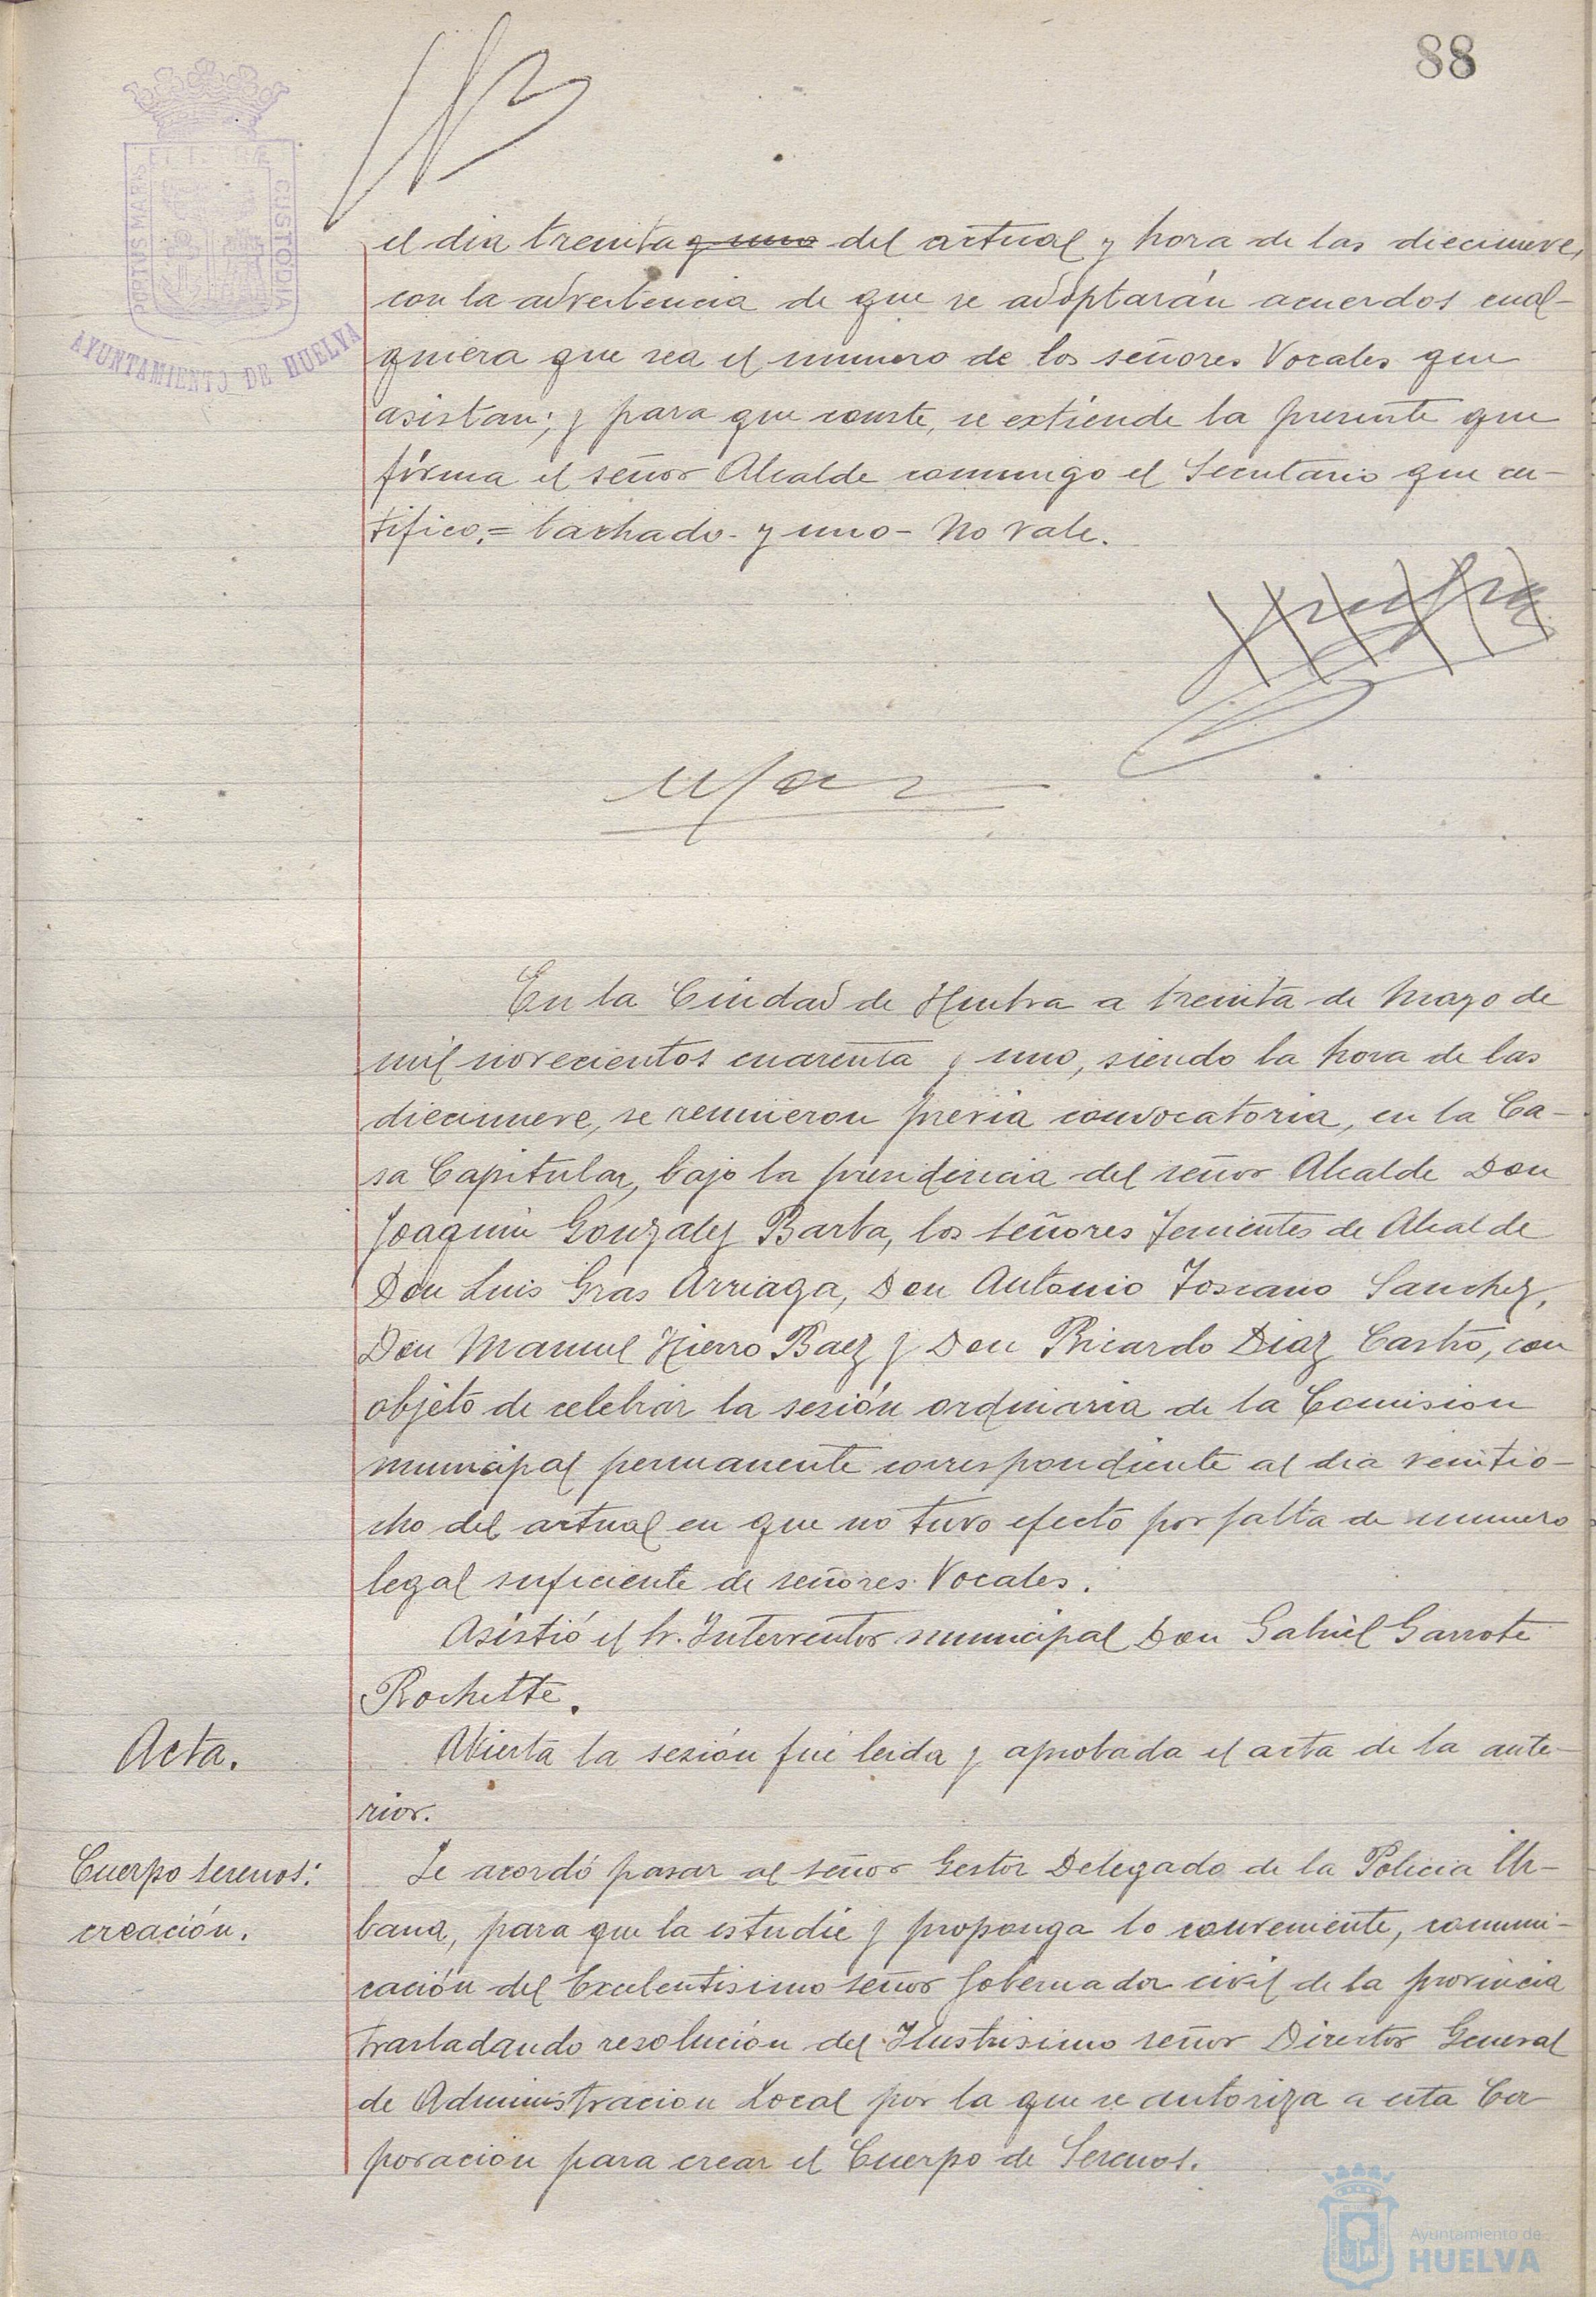 88
PORTUS MARIS ET TERRÆ CUSTODIA
AYUNTAMIENTO DE HUELVA
el dia treinta y uno del actual y hora de las diecinueve,
con la advertencia de que se adoptarán acuerdos cual-
quiera que sea el numero de los señores Vocales que
asistan; y para que conste, se extiende la presente que
firma el señor Alcalde conmigo el Secretario que cer-
tifico.= tachado - y uno - No vale.
En la Ciudad de Huelva a treinta de Mayo de
mil novecientos cuarenta y uno, siendo la hora de las
diecinueve, se reunieron previa convocatoria, en la Ca-
sa Capitular, bajo la presidencia del señor Alcalde Don
Joaquin Gonzalez Barba, los señores Tenientes de Alcalde
Don Luis Gras Arriaga, Don Antonio Toscano Sanchez,
Don Manuel Hierro Baez y Don Ricardo Diaz Castro, con
objeto de celebrar la sesión ordinaria de la Comision
municipal permanente correspondiente al dia veintio-
cho del actual en que no tuvo efecto por falta de numero
legal suficiente de señores Vocales.
Asistió el Sr. Interventor municipal Don Gabriel Garrote
Rochette.
Acta.
Abierta la sesión fué leida y aprobada el acta de la ante-
rior.
Cuerpo serenos:
creación.
Se acordó pasar al señor Gestor Delegado de la Policia Ur-
bana, para que la estudie y proponga lo conveniente, comuni-
cación del Excelentisimo señor Gobernador civil de la provincia
trasladando resolución del Ilustrisimo señor Director General
de Administracion Local por la que se autoriza a esta Cor-
poración para crear el Cuerpo de Serenos.
Ayuntamiento de
HUELVA